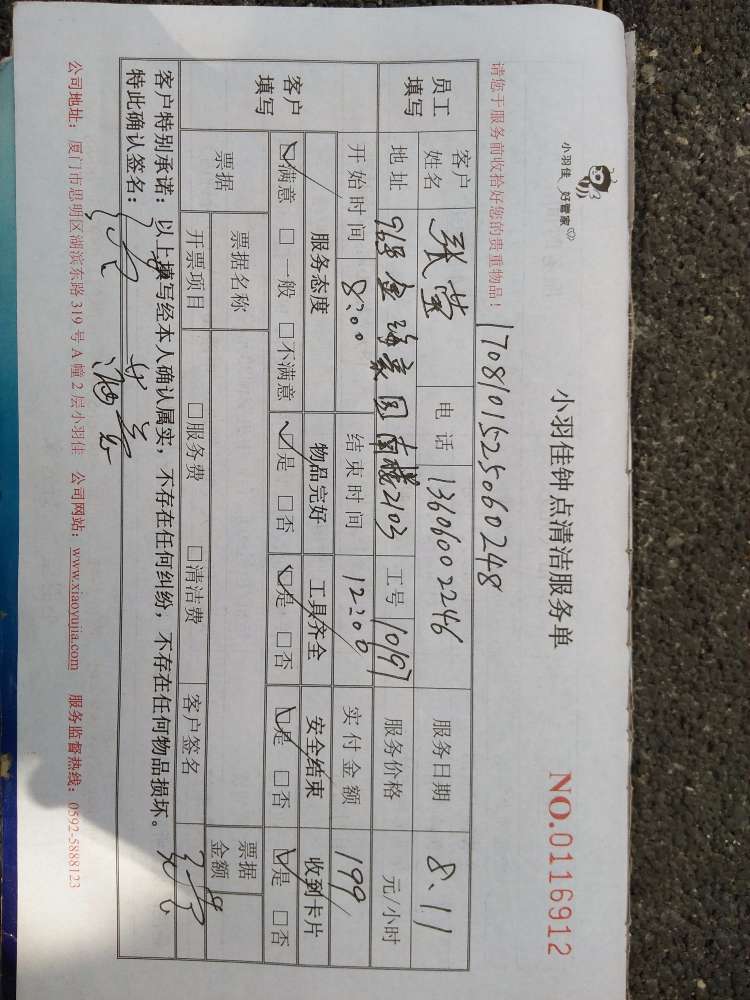 小羽佳 好管家
小羽佳钟点清洁服务单
NO.0116912
请您于服务前收拾好您的贵重物品！
170810152506 0248
员工填写
客户姓名 张莹 电话 13606002246 服务日期 8.11
地址 96号金海家园南楼2103 工号 10197 服务价格 元/小时
开始时间 8:00 结束时间 12:00 实付金额 199
客户填写
服务态度 物品完好 工具齐全 安全结束 收到卡片
☑满意 □一般 □不满意 ☑是 □否 ☑是 □否 ☑是 □否 ☑是 □否
票据 票据名称 票据金额
开票项目 □服务费 □清洁费 客户签名
客户特别承诺：以上填写经本人确认属实，不存在任何纠纷，不存在任何物品损坏。
特此确认签名：
公司地址：厦门市思明区湖滨东路 319 号 A 幢 2 层小羽佳 公司网站：www.xiaoyujia.com 服务监督热线：0592-5888123